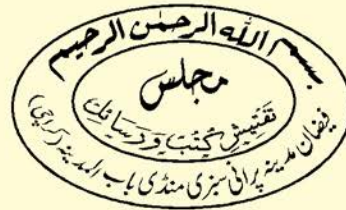 بسم اللہ الرحمٰن الرحیم
مجلس
تفتیش کتب ورسائل
فیضان مدینہ پرانی سبزی منڈی باب المدینہ (کراچی)